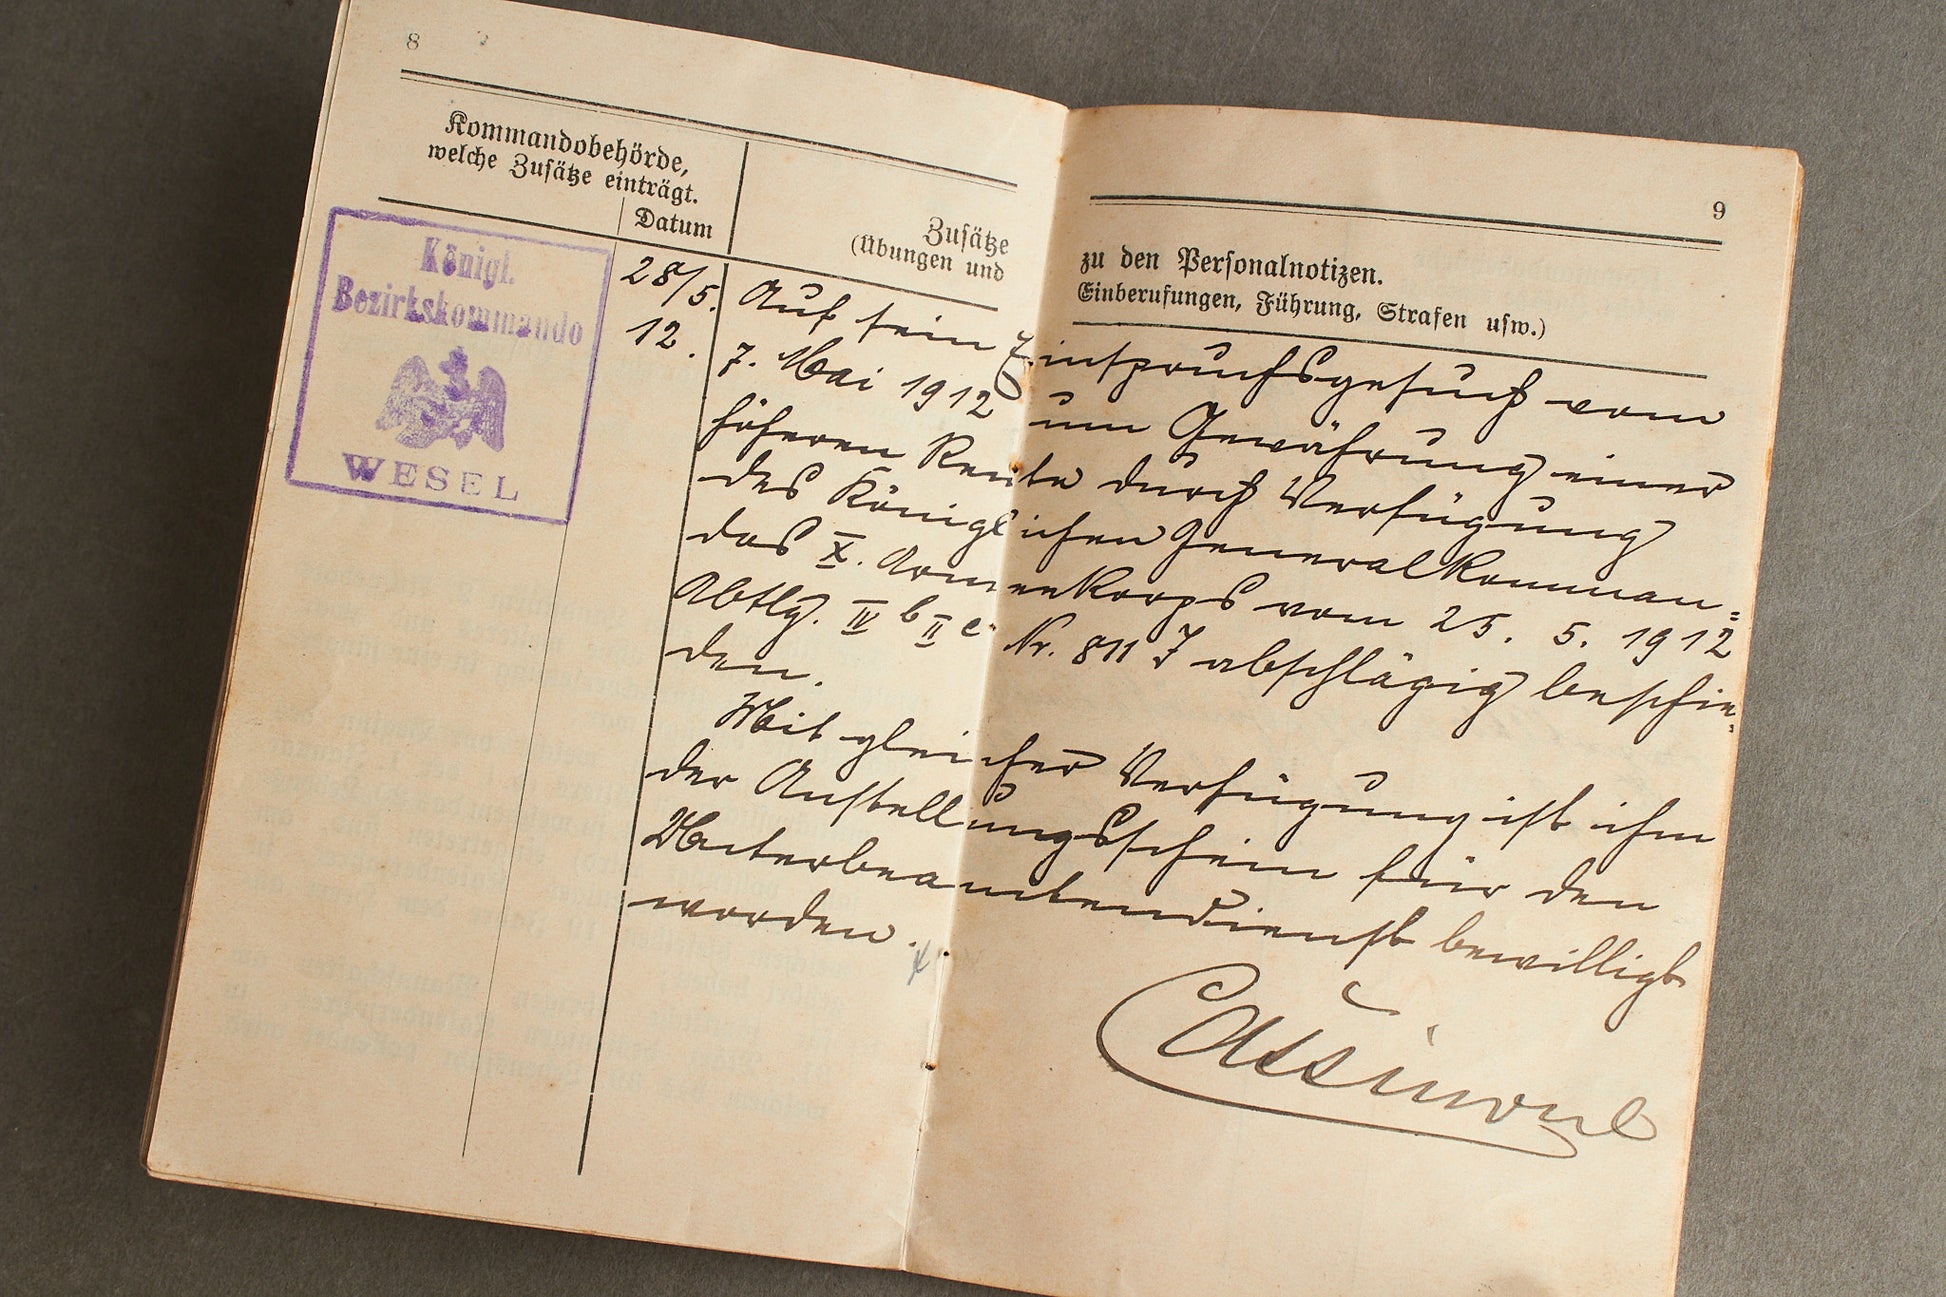 8
Kommandobehörde,
welche Zusätze einträgt.
Datum
Zusätze
(Übungen und
9
zu den Personalnotizen.
Einberufungen, Führung, Strafen usw.)
Königl.
Bezirkskommando
WESEL
28/5.
12.
Auf sein Einspruchsgesuch vom
7. Mai 1912 um Gewährung einer
höheren Rente durch Verfügung
des Königlichen Generalkomman=
dos X. Armeekorps vom 25. 5. 1912
Abtlg. IV b II c Nr. 811 J abschlägig beschie=
den.
Mit gleicher Verfügung ist ihm
der Anstellungsschein für den
Unterbeamtendienst bewilligt
worden.